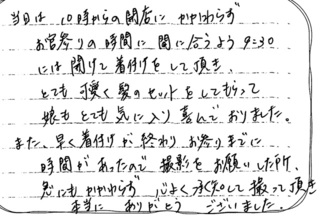 当日は、10時からの開店にかかわらず
お宮参りの時間に間に合うよう9:30
には開けて着付けをして頂き、
とても可愛く髪のセットをしてもらって
娘もとても気に入り喜んでおりました。
また、早く着付けが終わりお参りまでに
時間があったので撮影をお願いした所、
急にもかかわらず心よく承知して撮って頂き
本当にありがとうございました。